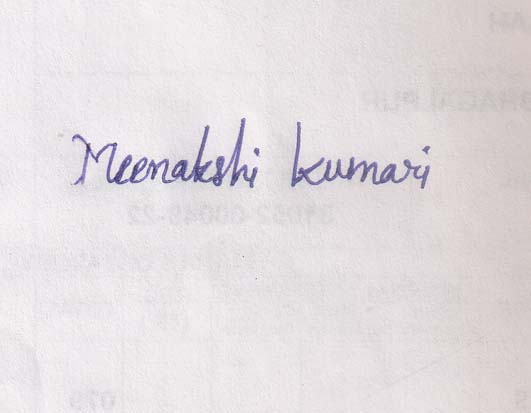 Meenakshi kumari